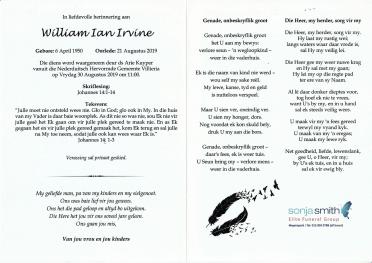 In liefdevolle herinnering aan
William Ian Irvine
Gebore: 6 April 1950 Oorlede: 21 Augustus 2019
Die diens word waargeneem deur ds Arie Kuyper
vanuit die Nederduitsch Hervormde Gemeente Villieria
op Vrydag 30 Augustus 2019 om 11:00.
Skriflesing:
Johannes 14:1-14
Teksvers:
"Julle moet nie ontsteld wees nie. Glo in God; glo ook in My. In die huis
van my Vader is daar baie woonplek. As dit nie so was nie, sou Ek vir
julle gesê het Ek gaan om vir julle plek gereed te maak nie. En as Ek
gegaan het en vir julle plek gereed gemaak het, kom Ek terug en sal julle
na My toe neem, sodat julle ook kan wees waar Ek is."
Johannes 14: 1-3
Verassing sal privaat geskied.
My geliefde man, pa van my kinders en my sielgenoot.
Ons was baie lief vir jou gewees.
Ons het die pad geloop en altyd bo uitgekom.
Die Here het jou vir ons sonad jare geleen.
Ons gaan jou mis,
Van jou vrou en jou kinders
Genade, onbeskryflik groot
Genade, onbeskryflik groot
het U aan my bewys:
verlore seun – 'n wegloopkind –
weer in die vaderhuis.
Ek is die naam van kind nie werd –
wou self my sake reël.
My lewe, kanse, tyd en geld
is nutteloos verspeel.
Maar U sien ver, oneindig ver.
U sien my honger, dors.
Nog voordat ek kon skuld bely,
druk U my aan die bors.
Genade, onbeskryflik groot –
daar's fees, ek is weer tuis.
U Seun bring my – verlore mens –
weer in die vaderhuis.
Die Heer, my herder, sorg vir my
Die Heer, my herder, sorg vir my.
Hy laat my rustig wei;
langs waters waar daar vrede is,
sal Hy my siel verkwik.
Die Heer gee my weer nuwe krag
en Hy sal met my gaan;
Hy lei my op die regte pad
ter ere van sy Naam.
Al lê daar donker dieptes voor,
tog hoef ek nie te vrees,
want U's by my, en in u hand
sal ek steeds veilig wees.
U maak vir my 'n fees gereed
terwyl my vyand kyk.
U maak van my 'n eregas;
U maak my lewe ryk.
Net goedheid, liefde, lewenslank,
gee U, o Heer, vir my;
by U's ek tuis, en in u huis
sal ek vir ewig bly.
sonja smith
Elite Funeral Group